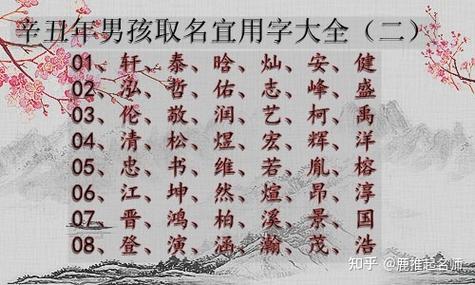 辛丑年男孩取名宜用字大全（二）
01、轩、泰、晗、灿、安、健
02、泓、哲、佑、志、峰、盛
03、伦、敬、润、艺、柯、禹
04、清、松、煜、宏、辉、洋
05、忠、书、维、若、胤、榕
06、江、坤、然、煊、昂、淳
07、晋、鸿、柏、溪、景、国
08、登、演、涵、瀚、茂、浩
知乎 @鹿推起名师